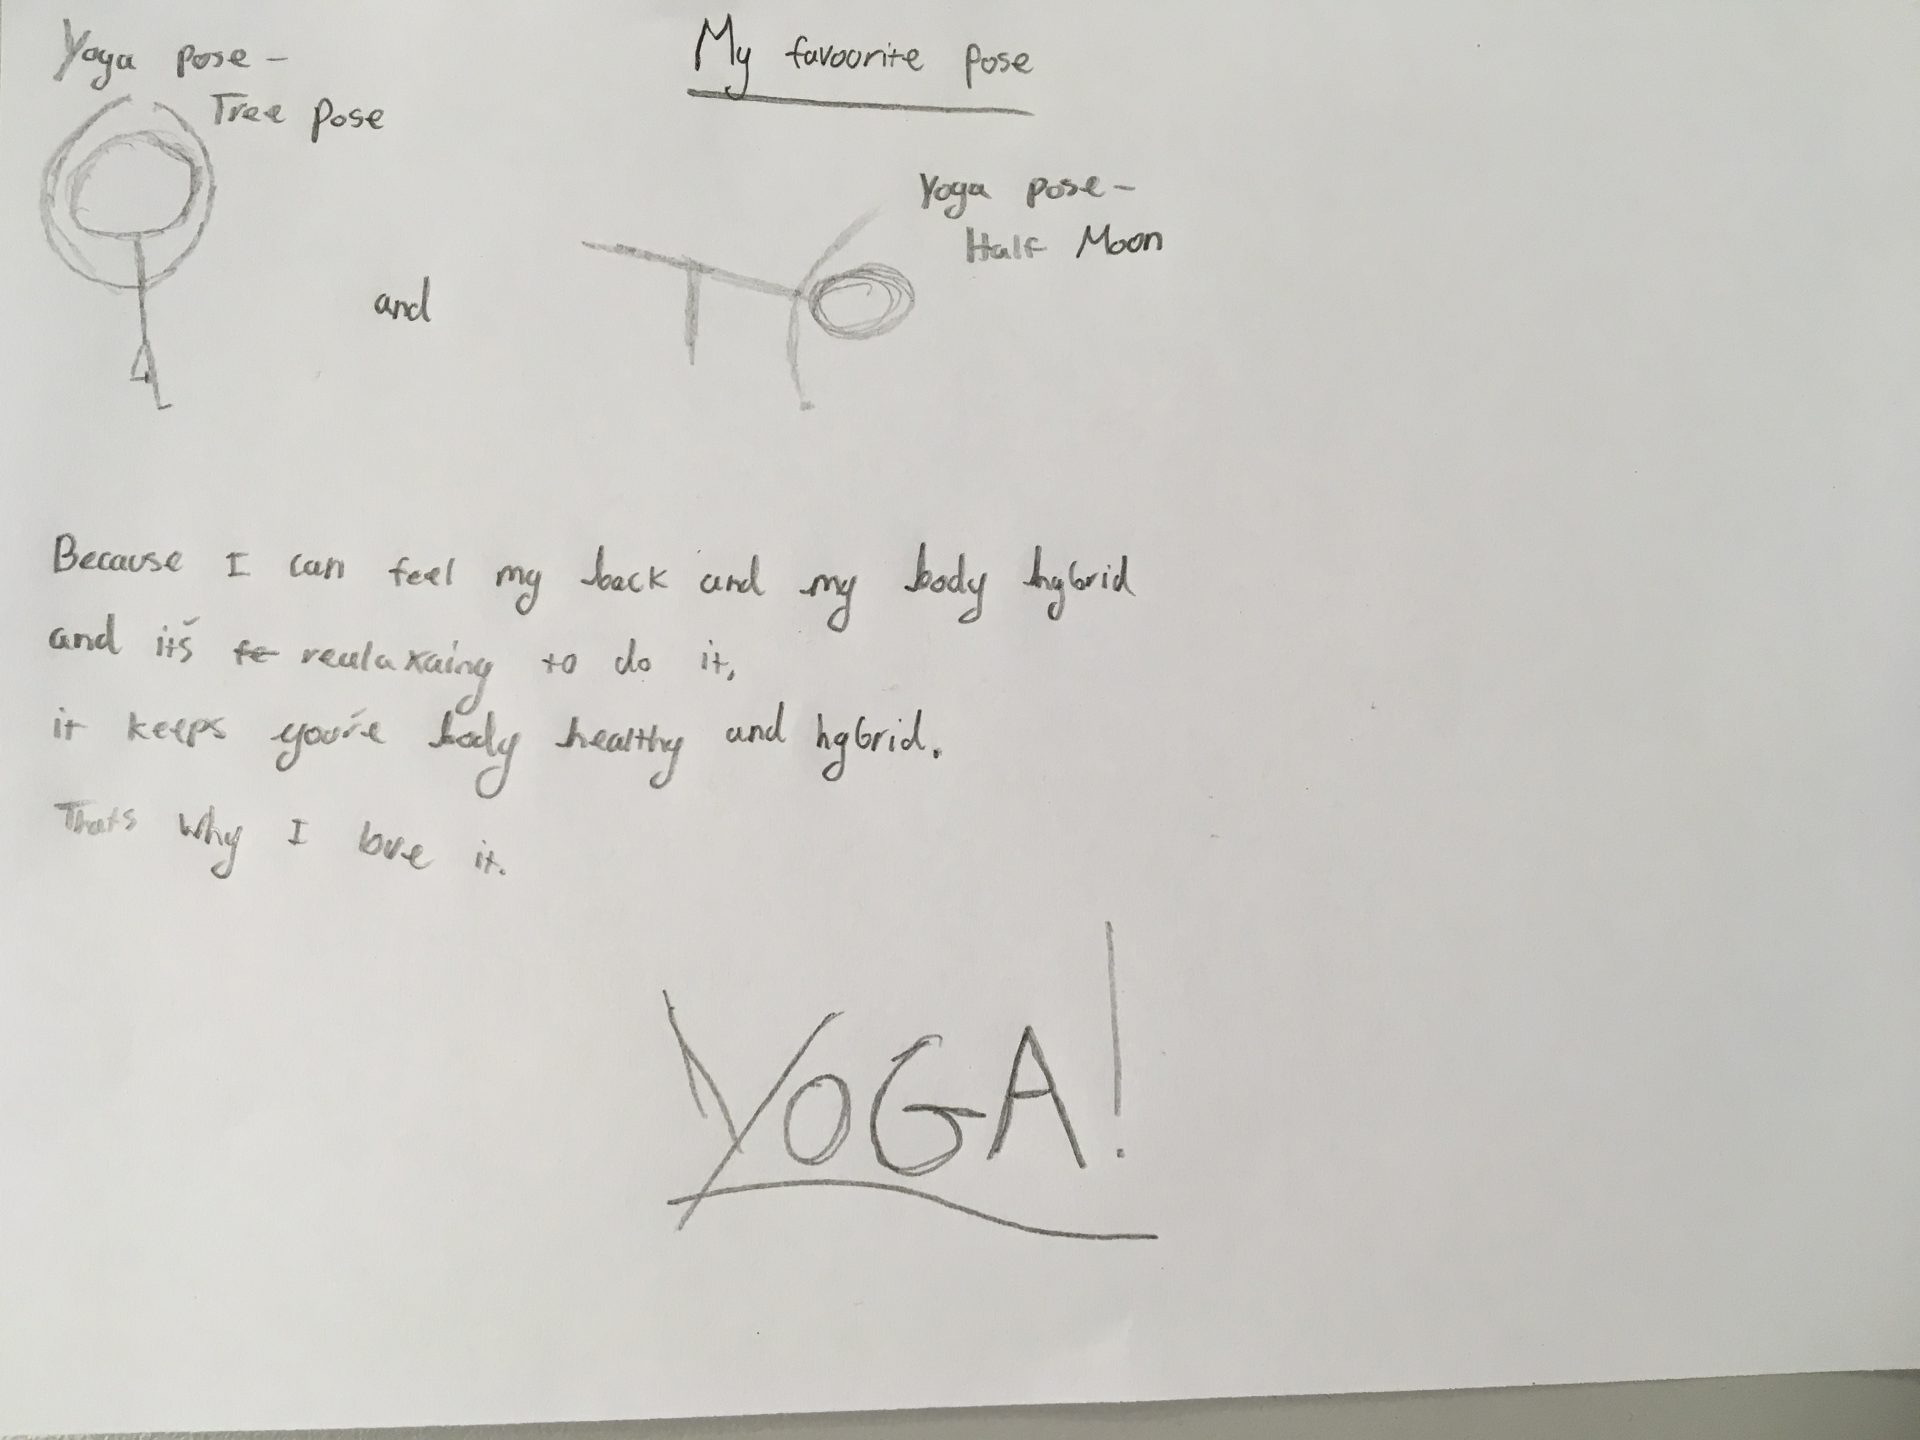 My favoorite pose
Yoga pose -
Tree Pose
and
Yoga pose -
Half Moon
Because I can feel my back and my body hybrid
and it's re realaxaing to do it,
it keeps you're body healthy and hybrid.
Thats why I love it.
YOGA!